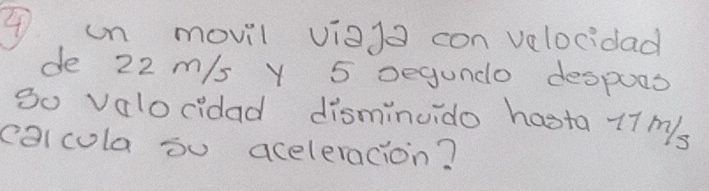 4) un movil viaja con velocidad
de 22 m/s y 5 segundo despues
su velocidad disminuido hasta 11 m/s
calcula su aceleración?